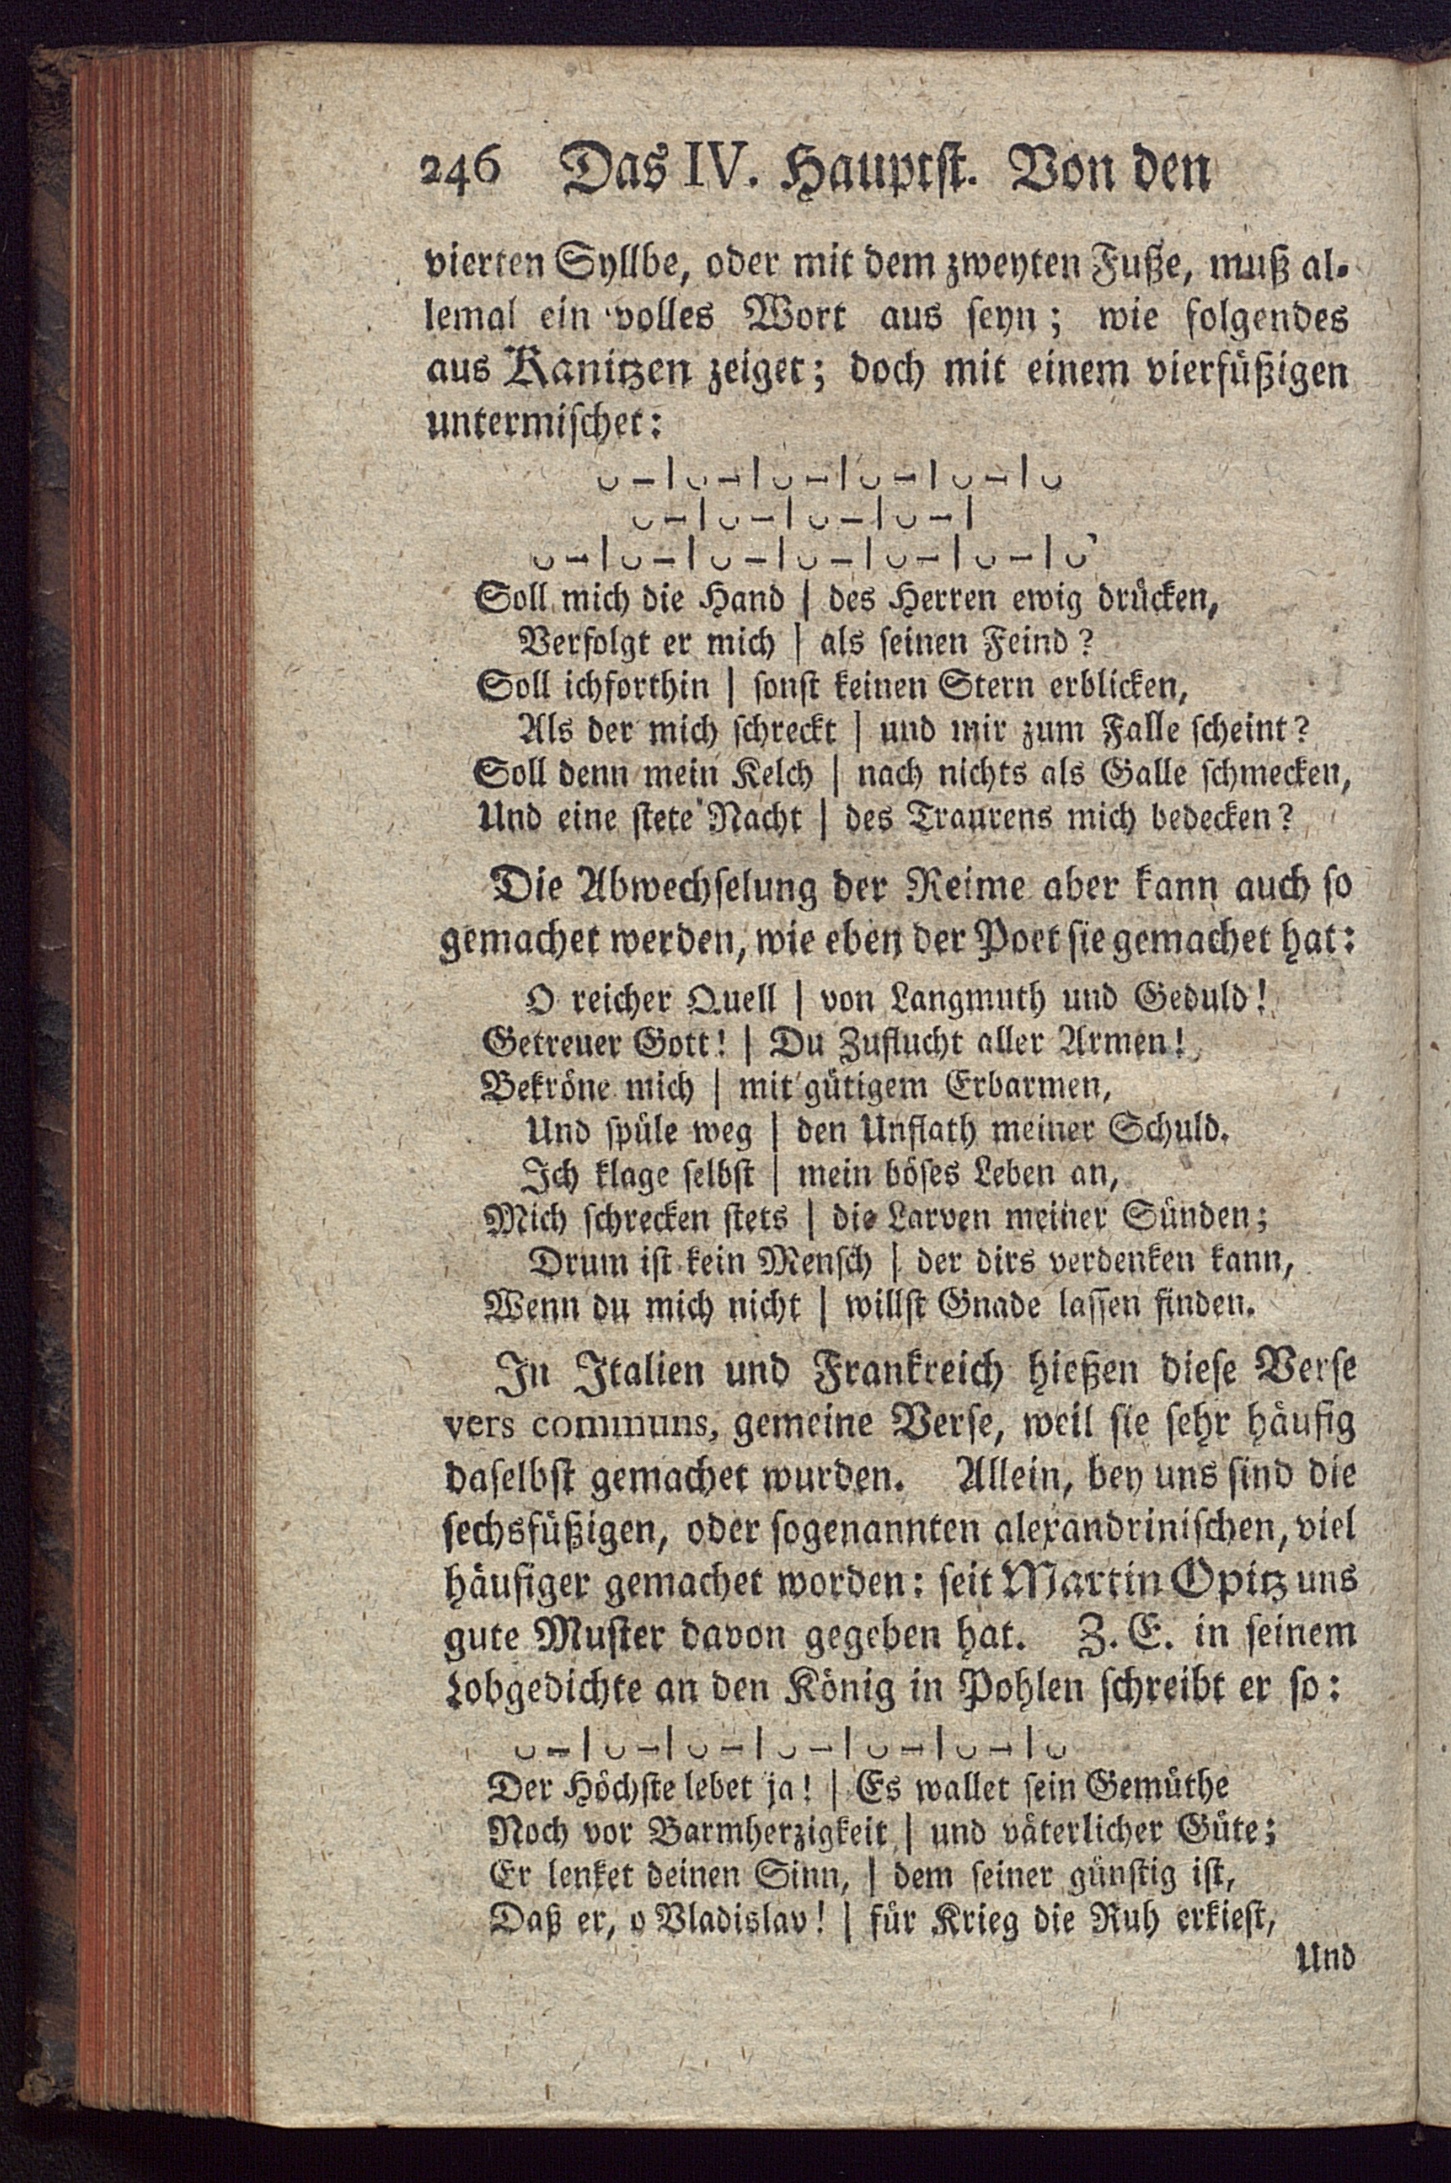 246 Das IV. Hauptst. Von den
vierten Syllbe, oder mit dem zweyten Fuße, muß al-
lemal ein volles Wort aus seyn; wie folgendes
aus Kanitzen zeiget; doch mit einem vierfüßigen
untermischet:
◡ – | ◡ – | ◡ – | ◡ – | ◡ – | ◡
◡ – | ◡ – | ◡ – | ◡ – |
◡ – | ◡ – | ◡ – | ◡ – | ◡ – | ◡ – | ◡
Soll mich die Hand | des Herren ewig drücken,
Verfolgt er mich | als seinen Feind?
Soll ichforthin | sonst keinen Stern erblicken,
Als der mich schreckt | und mir zum Falle scheint?
Soll denn mein Kelch | nach nichts als Galle schmecken,
Und eine stete Nacht | des Traurens mich bedecken?
Die Abwechselung der Reime aber kann auch so
gemachet werden, wie eben der Poet sie gemachet hat:
O reicher Quell | von Langmuth und Geduld!
Getreuer Gott! | Du Zuflucht aller Armen!
Bekröne mich | mit gütigem Erbarmen,
Und spüle weg | den Unflath meiner Schuld.
Ich klage selbst | mein böses Leben an,
Mich schrecken stets | die Larven meiner Sünden;
Drum ist kein Mensch | der dirs verdenken kann,
Wenn du mich nicht | willst Gnade lassen finden.
In Italien und Frankreich hießen diese Verse
vers communs, gemeine Verse, weil sie sehr häufig
daselbst gemachet wurden. Allein, bey uns sind die
sechsfüßigen, oder sogenannten alexandrinischen, viel
häufiger gemachet worden: seit Martin Opitz uns
gute Muster davon gegeben hat. Z. E. in seinem
Lobgedichte an den König in Pohlen schreibt er so:
◡ – | ◡ – | ◡ – | ◡ – | ◡ – | ◡ – | ◡
Der Höchste lebet ja! | Es wallet sein Gemüthe
Noch vor Barmherzigkeit, | und väterlicher Güte;
Er lenket deinen Sinn, | dem seiner günstig ist,
Daß er, o Vladislav! | für Krieg die Ruh erkiest,
Und